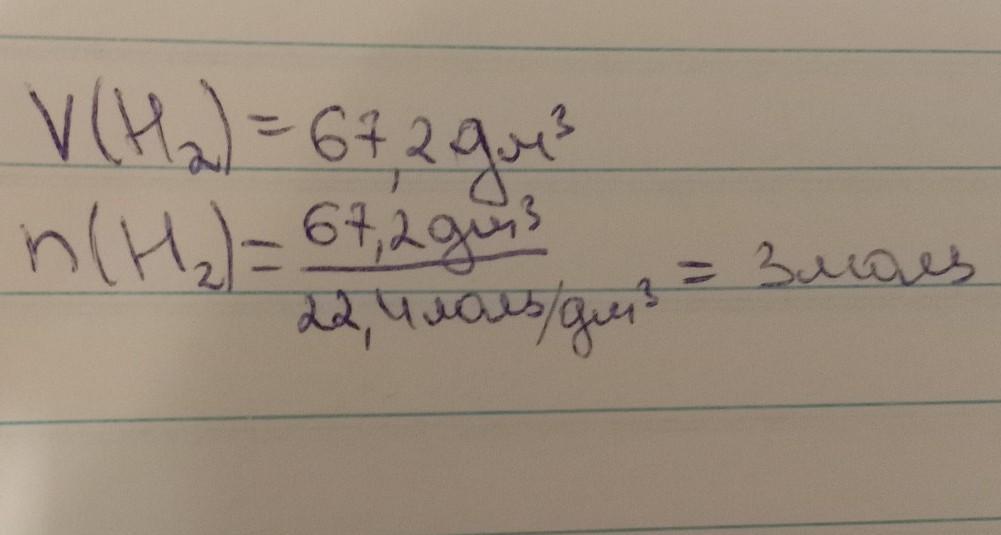 V(H₂) = 67,2 дм³
n(H₂) = 67,2 дм³ / 22,4 моль/дм³ = 3 моль